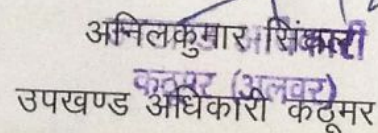 अनिलकुमार सिंघल
कठूमर (अलवर)
उपखण्ड अधिकारी कठूमर